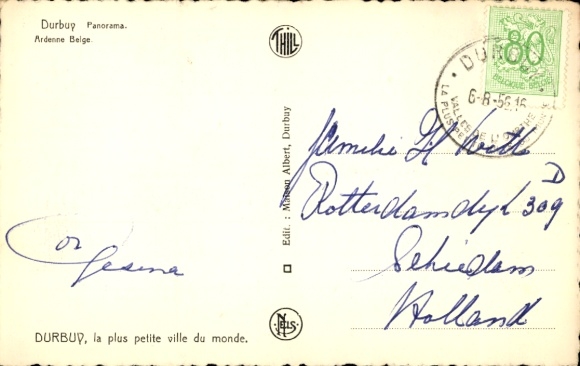 Durbuy Panorama.
Ardenne Belge.
THILL
80
BELGIQUE-BELGIE
DURBUY
6-8-56 16
VALLEE DE L'OURTHE
LA PLUS PE
Edit. : Maison Albert, Durbuy
Familie H Witte
Rotterdamdyk 309 D
Schiedam
Holland
Cor
Gesina
NELS
DURBUY, la plus petite ville du monde.